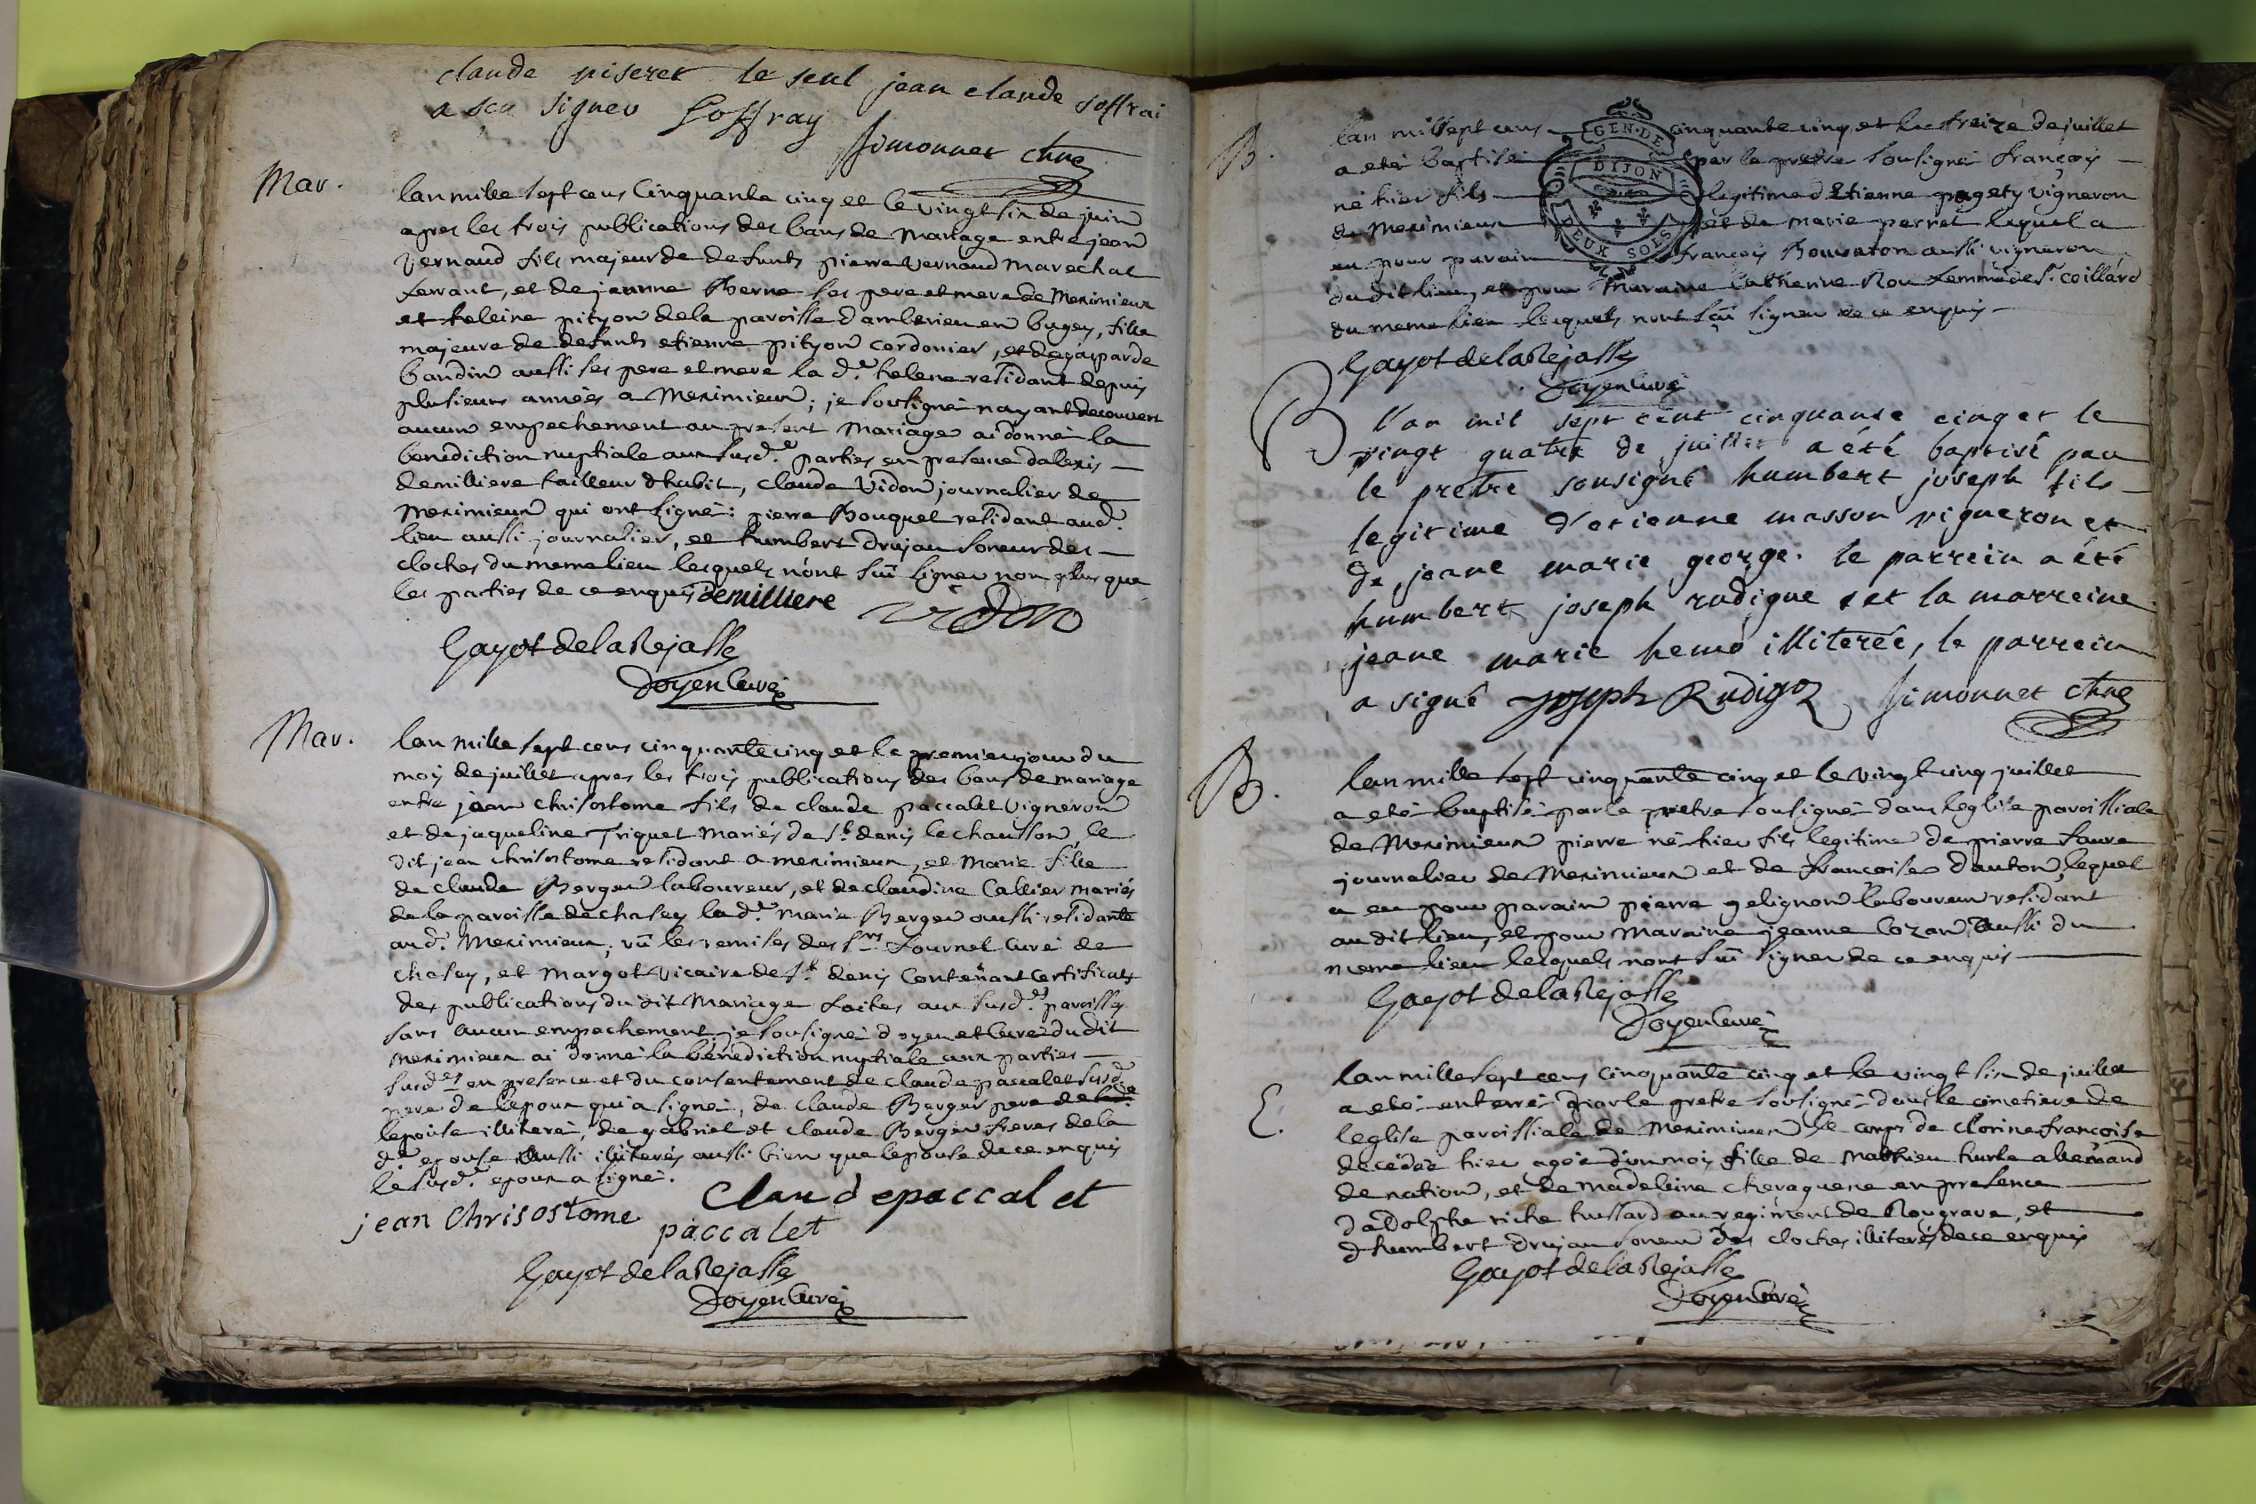 claude niseret le seul jean claude soffrai
a scu signer Soffray
Simonnet chne
Mar.
lan mille sept cens Cinquante cinq et le vingt six de juin
apres les trois publications des bans de Mariage entre jean
Vernaud fils majeur de defunts pierre Vernaud Marechal
ferrant, et de jeanne Berne ses pere et mere de Meximieux
et heleine pityon de la paroisse d'amberieu en bugey, fille
majeure de defunts etienne pityon cordonier, et de gasparde
baudin aussi ses pere et mere la d.e helene residant depuis
plusieurs années a Meximieux; je soussigné nayant decouvert
aucun empechement au present Mariage ai donné la
benediction nuptiale aux susd.es parties en presence dalexis
demilliere tailleur dhabit, claude Vidon journalier de
Meximieux qui ont signé: pierre Bouquet residant aud.
lieu aussi journalier, et humbert drujan soneur des
cloches du meme lieu lesquels n'ont sçu signer non plus que
les parties de ce enquis demilliere vidon
Gayot de la Rejasse
Doyen Curé
Mar.
lan Mille sept cens cinquante cinq et le premier jour du
mois de juillet apres les trois publications des bans de mariage
entre jean chrisostome fils de claude paccalet vigneron
et de jaqueline Triquet mariés de st denis le chausson le
dit jean chrisostome residant a meximieux, et Marie fille
de claude Berger laboureur, et de claudine Callier mariés
de la paroisse de chasey la d.e Marie Berger aussi residante
aud. Meximieux; vû les remises des srs Fournet curé de
chasey, et Margot vicaire de st denis Contenant certificats
des publications du dit Mariage faites aux susd.es paroisses
sans aucun empechement, je soussigné doyen et Curé du dit
meximieux ai donné la bénédiction nuptiale aux parties
susd.es en presence et du consentement de claude paccalet susd.
pere de lepoux qui a signé, de claude Berger pere de lad.e
lepouse illiteré, de gabriel et claude Berger freres de la
d.e epouse aussi illiterés aussi bien que lepouse de ce enquis
le susd. epoux a signé.
Claud epaccalet
jean Chrisostome
paccalet
Gayot de la Rejasse
Doyen Curé
GEN. DE
DIJON
DEUX SOLS
B.
lan mil sept cens cinquante cinq et le treize de juillet
a eté baptisé par le pretre soussigné françois
né hier fils legitime d'Etienne pagety vigneron
de Meximieux et de marie perret lequel a
eu pour parain françois Bouvaton aussi vigneron
du dit lieu, et pour Maraine Catherine Roux femme de sr coillard
du meme lieu lesquels n'ont sçu signer de ce enquis
Gayot de la Rejasse
Doyen Curé
B
l'an mil sept cent cinquante cinq et le
vingt quatre de juillet a été baptisé par
le pretre sousigné humbert joseph fils
legitime d'etienne masson vigneron et
de jeane marie george. le parrein a été
humbert joseph rudigue et la marreine
jeane marie hemo illiterée, le parrein
a signé Joseph Rudigoz Simonnet chne
B.
lan mille sept cinquante cinq et le vingt cinq juillet
a eté baptisé par le pretre sousigné dans leglise paroissiale
de Meximieux pierre né hier fils legitime de pierre favre
journalier de Meximieux et de francoise danton lequel
a eu pour parain pierre gelignon laboureur residant
au dit lieu, et pour Maraine jeanne Cozan aussi du
meme lieu lesquels nont sçu signer de ce enquis
Gayot de la Rejasse
Doyen Curé
E.
lan mille sept cens cinquante cinq et le vingt six de juillet
a eté enterré par le pretre sousigné dans le cimetiere de
leglise paroissiale de Meximieux le corps de clorine francoise
decedée hier agée dun mois fille de Mathieu hurle allemand
de nation, et de Madeleine cheraguene en presence
dadolphe riche hussard au regiment de Nougrave, et
dhumbert drujan soneur des cloches illiterés de ce enquis
Gayot de la Rejasse
Doyen Curé